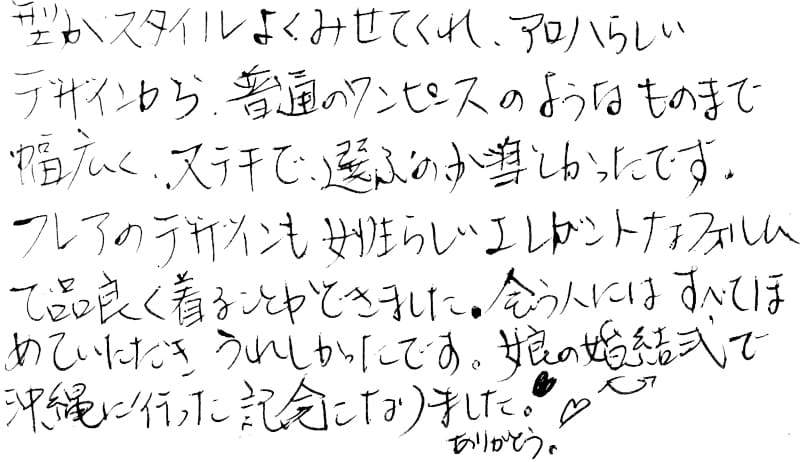 型がスタイルよくみせてくれ、アロハらしい
デザインから、普通のワンピースのようなものまで
幅広く、ステキで、選ぶのが難しかったです。
フレアのデザインも女性らしいエレガントなフォルム
で品良く着ることができました。会う人にはすべてほ
めていただきうれしかったです。娘の結婚式で
沖縄に行った記念になりました。
ありがとう。